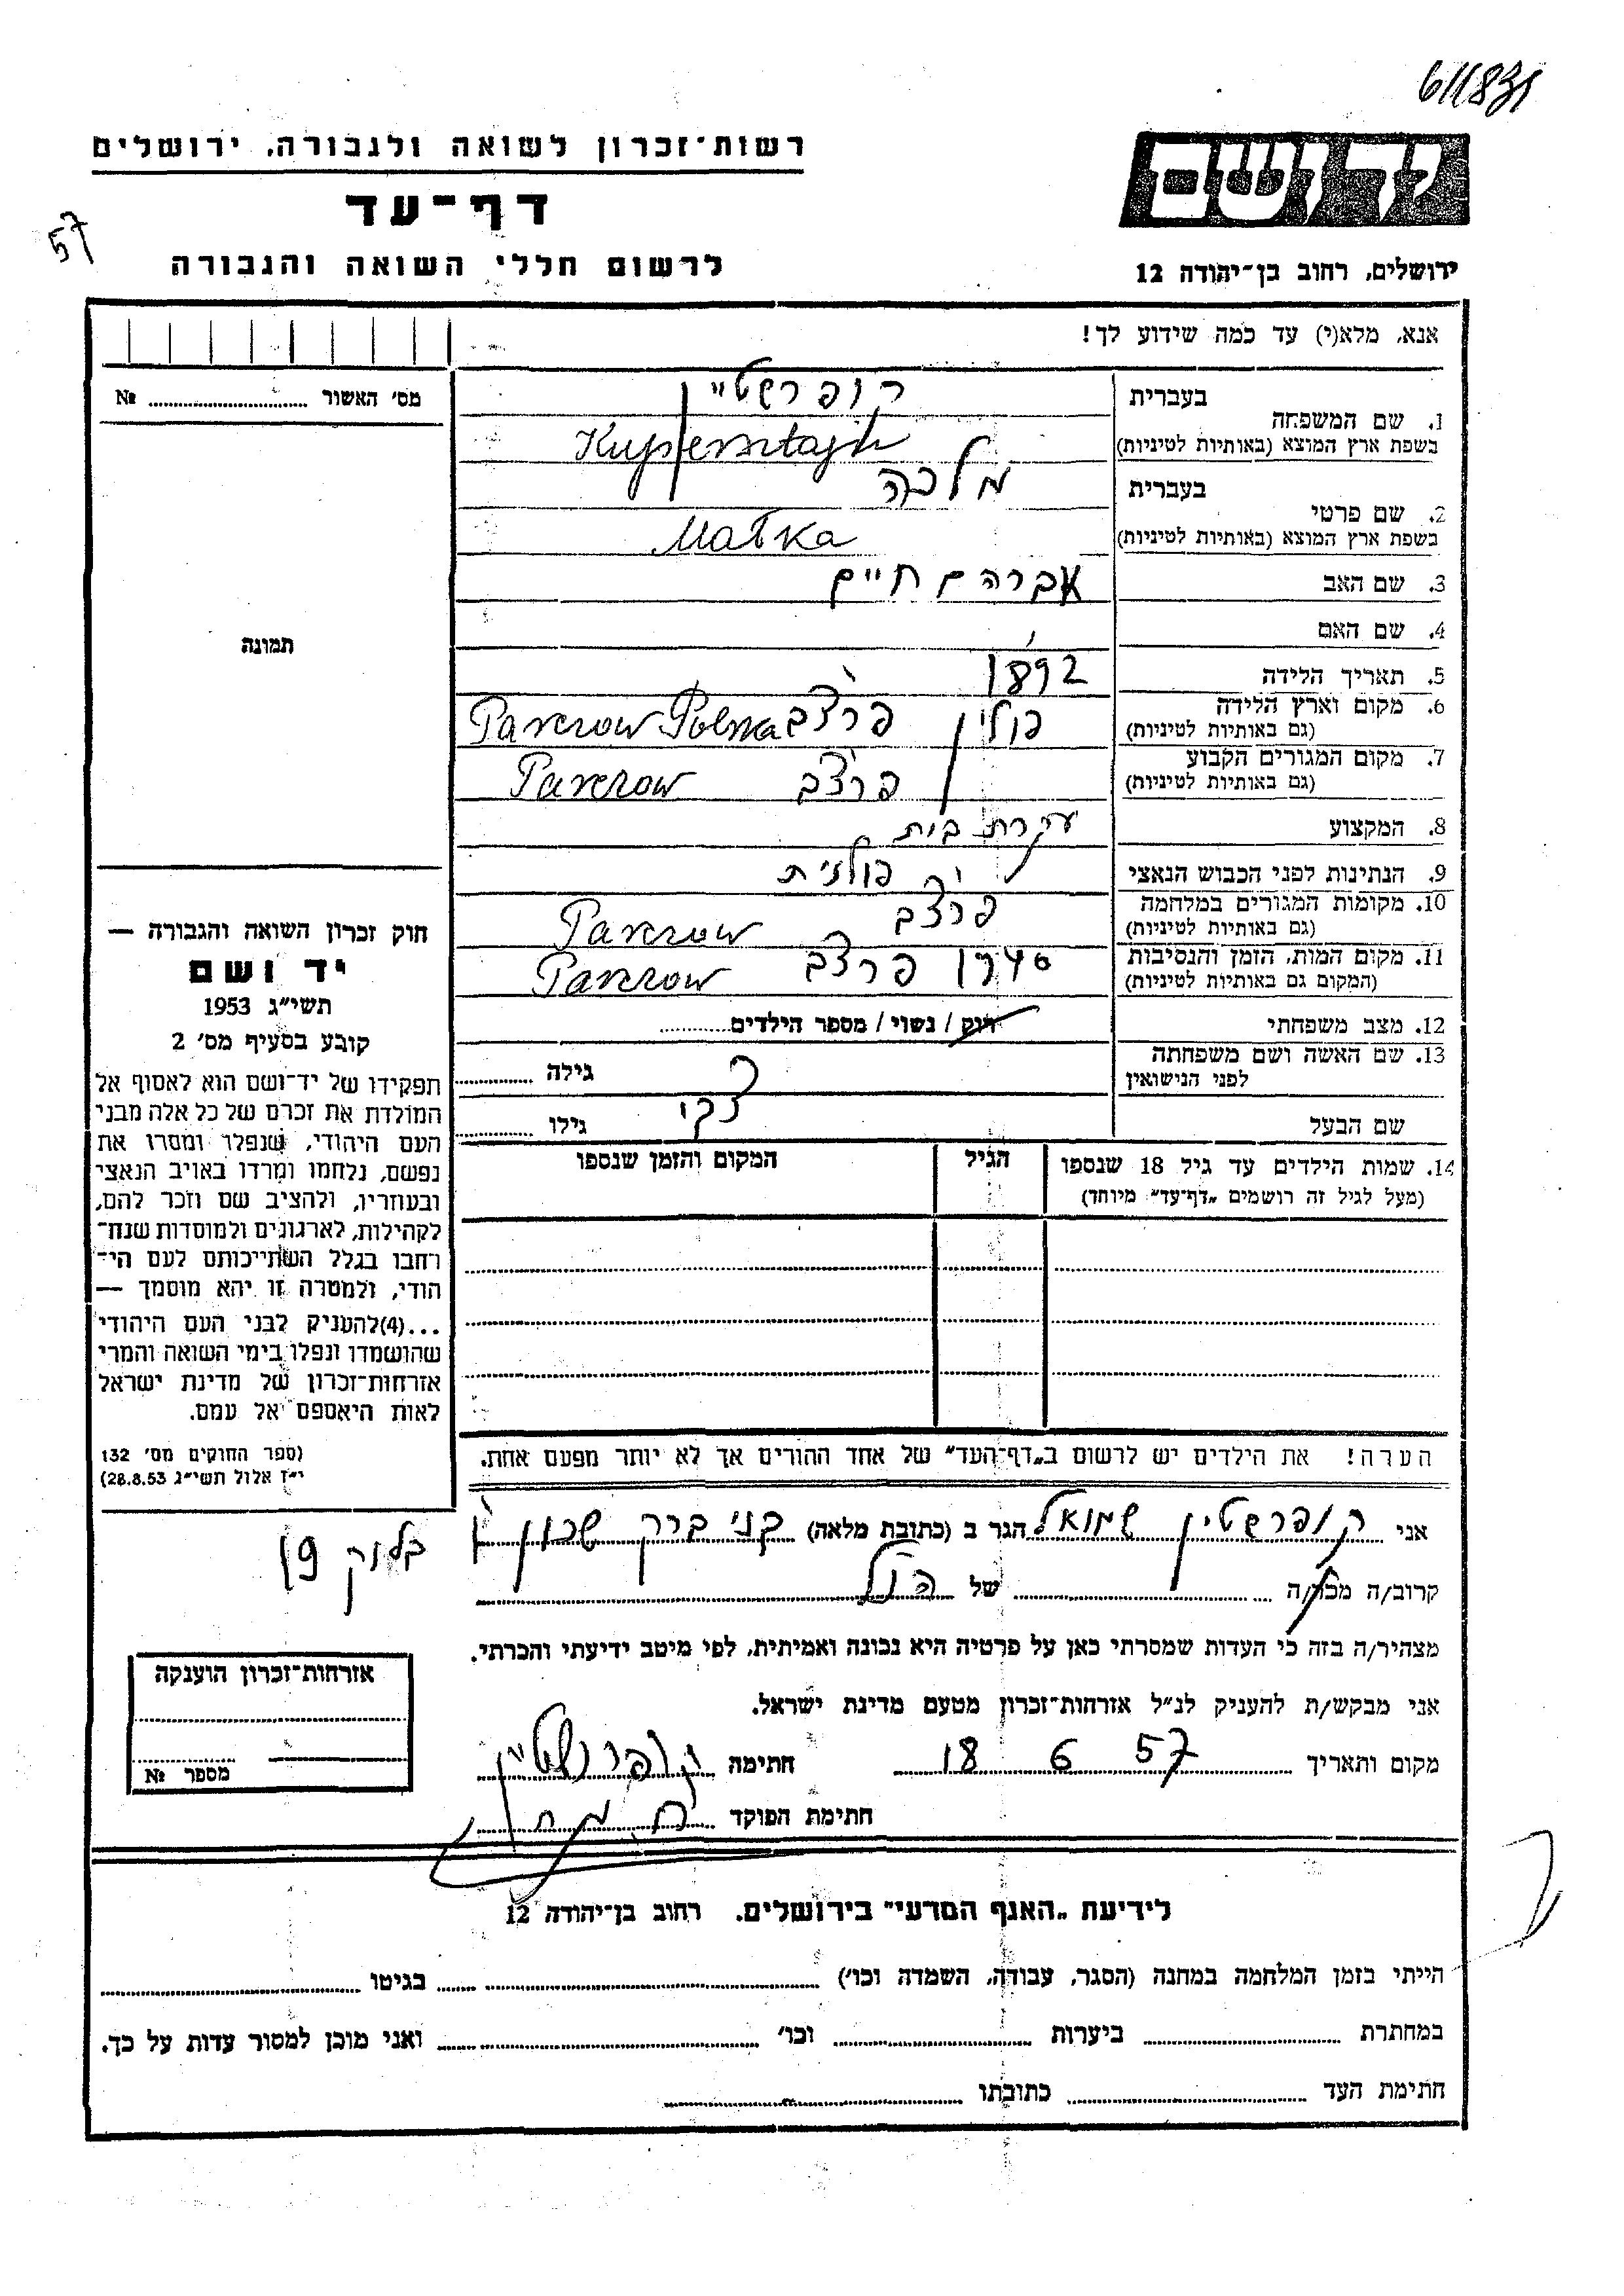 611831
רשות־זכרון לשואה ולגבורה, ירושלים
יד ושם
דף־עד
57
לרשום חללי השואה והגבורה
ירושלים, רחוב בן־יהודה 12
אנא, מלא(י) עד כמה שידוע לך!
מס׳ האשור № 
1. שם המשפחה
בעברית
קופרשטיין
בשפת ארץ המוצא (באותיות לטיניות)
Kupfersztajn
2. שם פרטי
בעברית
מלכה
בשפת ארץ המוצא (באותיות לטיניות)
Małka
3. שם האב
אברהם חיים
4. שם האם
תמונה
5. תאריך הלידה
1892
6. מקום וארץ הלידה
(גם באותיות לטיניות)
פולין פרצ׳ב Parczow Polska
7. מקום המגורים הקבוע
(גם באותיות לטיניות)
פרצ׳ב Parczow
8. המקצוע
עקרת בית
9. הנתינות לפני הכבוש הנאצי
פולנית
10. מקומות המגורים במלחמה
(גם באותיות לטיניות)
פרצ׳ב Parczow
11. מקום המות, הזמן והנסיבות
(המקום גם באותיות לטיניות)
פרצ׳ב Parczow
12. מצב משפחתי
רוק / נשוי / מספר הילדים
13. שם האשה ושם משפחתה
לפני הנישואין
גילה
שם הבעל
גילו
14. שמות הילדים עד גיל 18 שנספו
(מעל לגיל זה רושמים „דף־עד״ מיוחד)
הגיל
המקום והזמן שנספו
חוק זכרון השואה והגבורה —
יד ושם
תשי״ג 1953
קובע בסעיף מס׳ 2
תפקידו של יד־ושם הוא לאסוף אל
המולדת את זכרם של כל אלה מבני
העם היהודי, שנפלו ומסרו את
נפשם, נלחמו ומרדו באויב הנאצי
ובעוזריו, ולהציב שם וזכר להם,
לקהילות, לארגונים ולמוסדות שנח־
רחבו בגלל השתייכותם לעם הי־
הודי, ולמטרה זו יהא מוסמך —
...(4)להעניק לבני העם היהודי
שהושמדו ונפלו בימי השואה והמרי
אזרחות־זכרון של מדינת ישראל
לאות היאספם אל עמם.
(ספר החוקים מס׳ 132
י״ז אלול תשי״ג 28.8.53)
הערה! את הילדים יש לרשום ב„דף־העד״ של אחד ההורים אך לא יותר מפעם אחת.
אני קופרשטיין שמואל הגר ב (כתובת מלאה) בני ברק שכון ו׳
בלוק 19
קרוב/ה מכר/ה של הנ״ל
מצהיר/ה בזה כי העדות שמסרתי כאן על פרטיה היא נכונה ואמיתית, לפי מיטב ידיעתי והכרתי.
אני מבקש/ת להעניק לנ״ל אזרחות־זכרון מטעם מדינת ישראל.
אזרחות־זכרון הוענקה
מספר №
מקום ותאריך 18 6 57 חתימה קופרשטיין
חתימת הפוקד
לידיעת „האגף המדעי״ בירושלים, רחוב בן־יהודה 12
הייתי בזמן המלחמה במחנה (הסגר, עבודה, השמדה וכו׳) בגיטו
במחתרת ביערות וכו׳ ואני מוכן למסור עדות על כך.
חתימת העד כתובתו